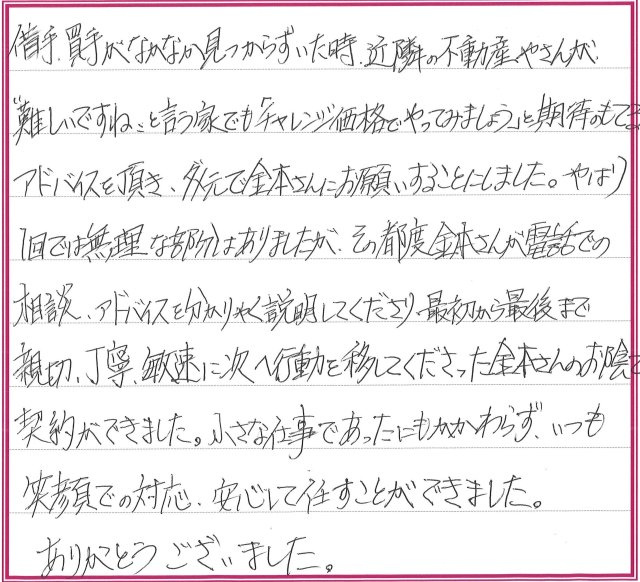 借手、買手がなかなか見つからずいた時、近隣の不動産やさんが、
"難しいですね"と言う家でも「チャレンジ価格でやってみましょう」と期待のもてる
アドバイスを頂き、多元で金本さんにお願いすることにしました。やはり
1回では無理な部分はありましたが、その都度金本さんが電話での
相談、アドバイスを分かりやく説明してくださり、最初から最後まで
親切、丁寧、敏速に次へ行動を移してくださった金本さんのお陰で
契約ができました。小さな仕事であったにもかかわらず、いつも
笑顔での対応、安心して任すことができました。
ありがとうございました。